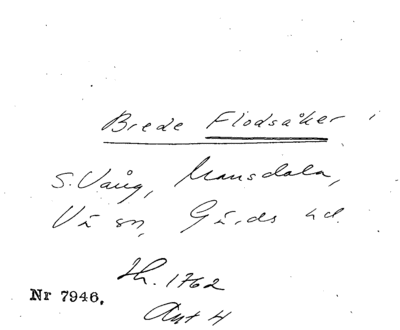 Brede Flodsåker i
S. Vång, Mansdala,
Vå sn, Gärds hd.
Ih. 1762
Akt 4
Nr 7946.